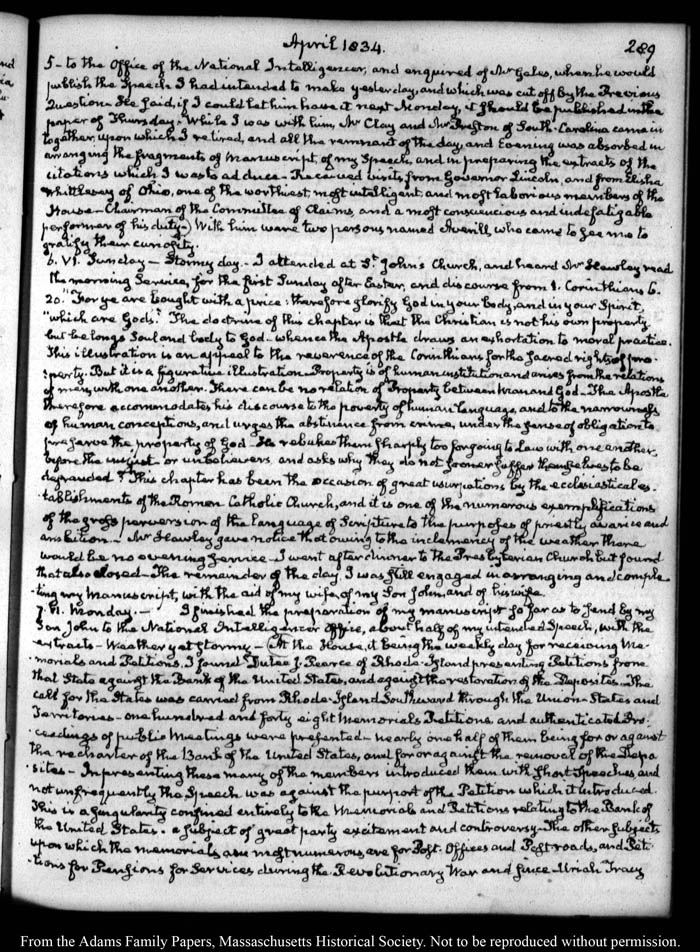 April 1834.
289
5 - to the Office of the National Intelligencer, and enquired of Mr Gales, when he would
publish the Speech I had intended to make yesterday, and which was cut off by the Previous
Question - He said, if I could let him have it next Monday, it should be published in the
paper of Thursday - While I was with him, Mr Clay and Mr Preston of South-Carolina came in
together, upon which I retired, and all the remnant of the day, and Evening was absorbed in
arranging the fragments of Manuscript, of my Speech, and in preparing the extracts of the
citations which I was to adduce - Received visits from Governor Lincoln, and from Elisha
Whittlesey of Ohio, one of the worthiest most intelligent and most laborious members of the
House - Chairman of the Committee of Claims, and a most conscientious and indefatigable
performer of his duty -) With him were two persons named Averill, who came to see me to
gratify their curiosity.
6. VI. Sunday - Stormy day - I attended at St. John's Church, and heard Mr Hawley read
the morning Service, for the first Sunday after Easter, and discourse from 1. Corinthians 6.
20. "For ye are bought with a price: therefore glorify God in your body, and in your Spirit,
"which are Gods." The doctrine of this chapter is that the Christian is not his own property
but belongs Soul and body to God - whence the Apostle draws an exhortation to moral practice.
This illustration is an appeal to the reverence of the Corinthians for the sacred rights of pro-
:perty. But it is a figurative illustration - Property is of human institution and arises from the relations
of man, with one another. There can be no relation of Property between man and God - The Apostle
therefore accommodates his discourse to the poverty of human language, and to the narrowness
of human conceptions, and urges the abstinence from crime, under the sense of obligation to
preserve the property of God - He rebukes them sharply too for going to Law with one another,
before the unjust - or unbelievers, and asks why they do not sooner suffer themselves to be
defrauded? This chapter has been the occasion of great usurpations by the ecclesiastical es-
:tablishments of the Roman Catholic Church, and it is one of the numerous exemplifications
of the gross perversion of the language of Scripture to the purposes of priestly avarice and
ambition - Mr Hawley gave notice that owing to the inclemency of the weather there
would be no evening Service - I went after dinner to the Presbyterian Church but found
that also closed - The remainder of the day, I was still engaged in arranging and comple-
:ting my Manuscript, with the aid of my wife, of my Son John, and of his wife.
7. II. Monday. - I finished the preparation of my manuscript so far as to send by my
Son John to the National Intelligencer Office, about half of my intended Speech, with the
extracts - Weather yet stormy - (At the House, it being the weekly day for receiving Me-
:morials and Petitions, I found Dutee J. Pearce of Rhode-Island presenting Petitions from
that State against the Bank of the United States, and against the restoration of the Deposites - The
call for the States was carried from Rhode-Island Southward through the Union - States and
Territories - one hundred and forty eight Memorials Petitions, and authenticated Pro-
:ceedings of public Meetings were presented - nearly one half of them being for or against
the recharter of the Bank of the United States, and for or against the removal of the Depo-
:sites - In presenting these many of the members introduced them with short Speeches and
not unfrequently the Speech was against the purport of the Petition which it introduced.
This is a singularity confined entirely to the Memorials and Petitions relating to the Bank of
the United States - a subject of great party excitement and controversy - The other subjects
upon which the memorials are most numerous are for Post-Offices and Post roads, and Peti-
:tions for Pensions for Services during the Revolutionary War and since - Uriah Tracy
From the Adams Family Papers, Massachusetts Historical Society. Not to be reproduced without permission.